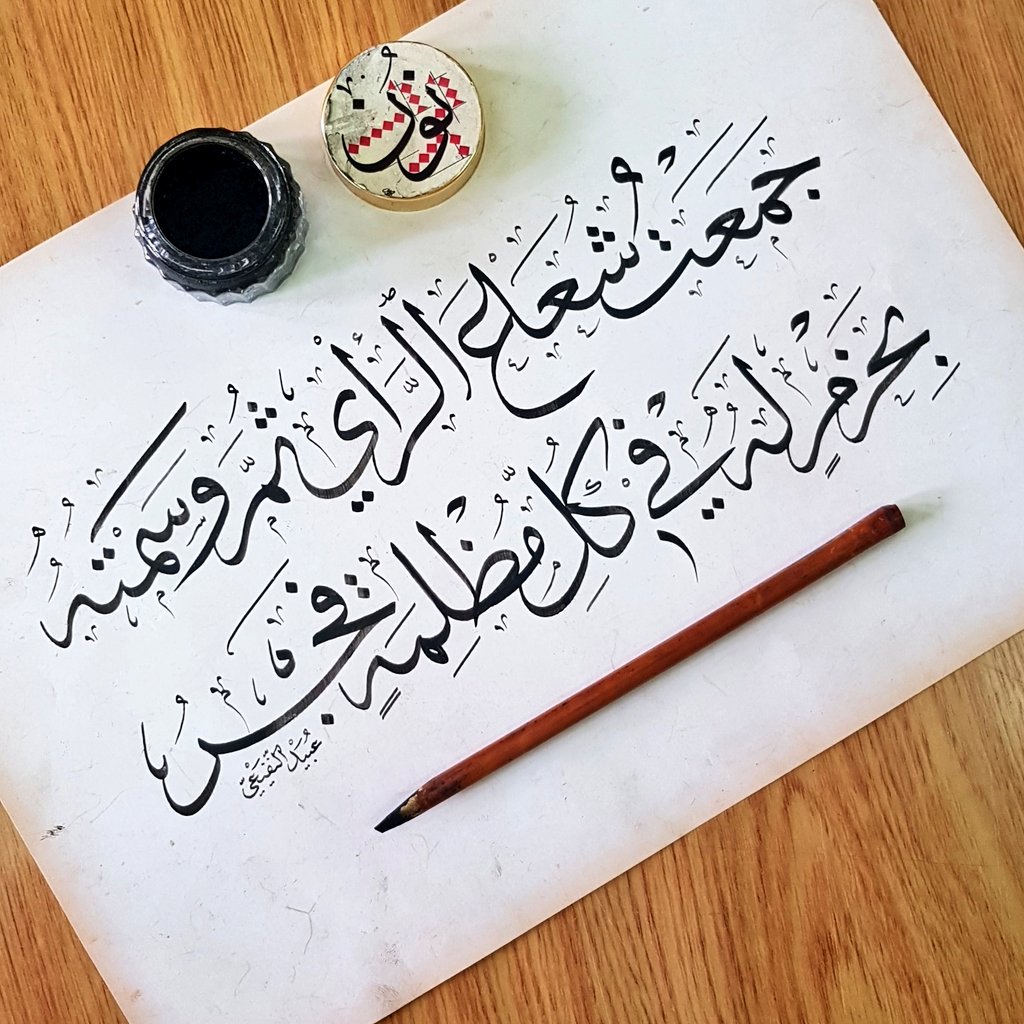 نون
جمعت شُعاع الرَّأْي ثمَّ وسمتهُ
بحزمٍ له في كلِّ مُظلمةٍ فجرُ
عبيد النفيعي